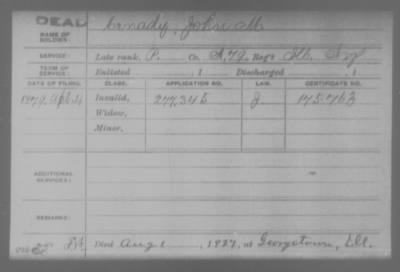 DEAD
NAME OF SOLDIER: Canady, John M.
SERVICE: Late rank, P. Co. A, 79, Reg't Ill. Inf.
TERM OF SERVICE: Enlisted , 1 Discharged , 1
DATE OF FILING. CLASS. APPLICATION NO. LAW. CERTIFICATE NO.
1879, Apl. Invalid, 277,345 175.763
Widow,
Minor,
ADDITIONAL SERVICES:
REMARKS:
Died Aug 1 , 1927, at Georgetown, Ill.